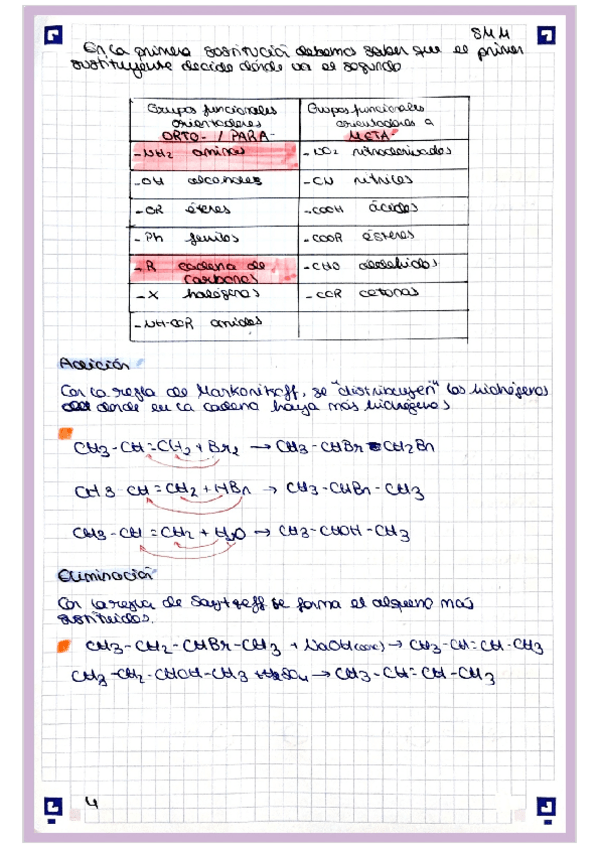 SMM
En la primera sustitución debemos saber que el primer
sustituyente decide donde va el segundo
Grupos funcionales orientadores ORTO- / PARA-
Grupos funcionales orientadores a META-
-NH2 aminas
-NO2 nitroderivados
-OH alcoholes
-CN nitrilos
-OR éteres
-COOH ácidos
-Ph fenilos
-COOR ésteres
-R cadena de carbonos
-CHO aldehidos
-X halógenos
-COR cetonas
-NH-COR amidas
Adición
Con la regla de Markonikoff, se "distribuyen" los hidrógenos
donde en la cadena haya más hidrógenos
CH3-CH=CH2 + Br2 → CH3-CHBr-CH2Br
CH3-CH=CH2 + HBr → CH3-CHBr-CH3
CH3-CH=CH2 + H2O → CH3-CHOH-CH3
Eliminación
Con la regla de Saytzeff se forma el alqueno más
sustituidos.
CH3-CH2-CHBr-CH3 + NaOH(conc) → CH3-CH=CH-CH3
CH3-CH2-CHOH-CH3 + H2SO4 → CH3-CH=CH-CH3
4